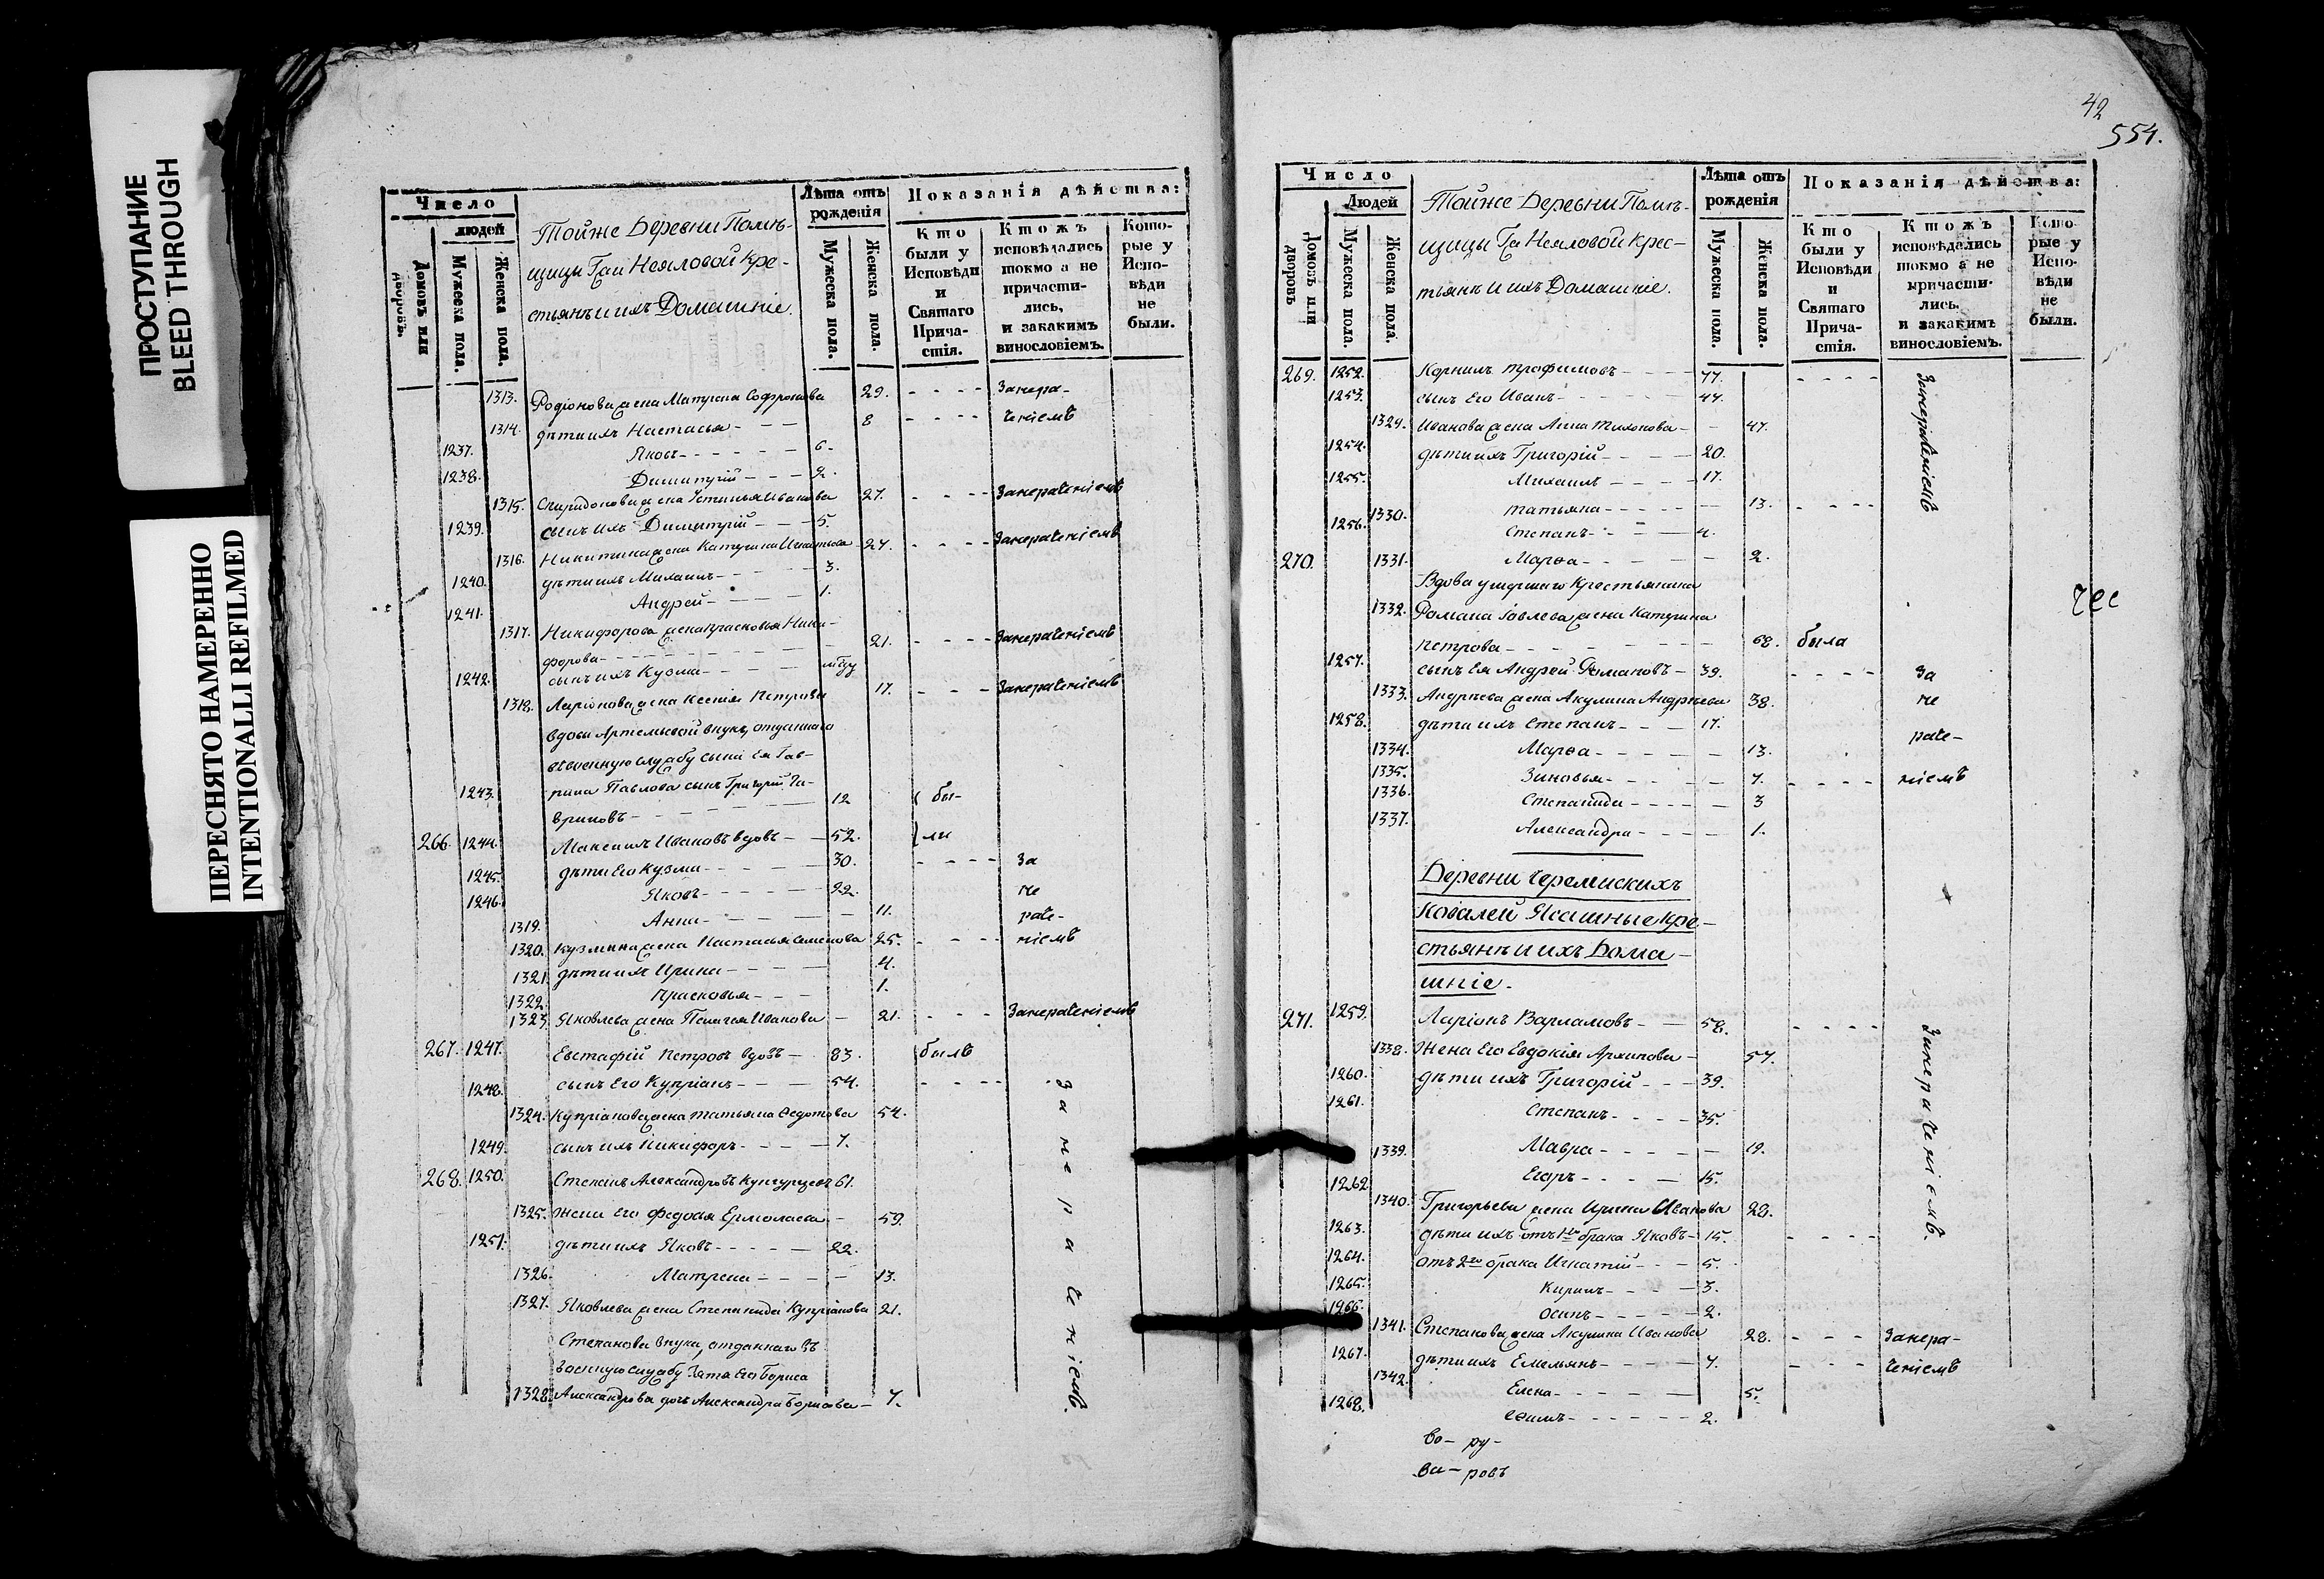 ПРОСТУПАНИЕ
BLEED THROUGH
ПЕРЕСНЯТО НАМЕРЕННО
INTENTIONALLI REFILMED
Число
людей
Домовъ или дворовъ.
Мужеска пола.
Женска пола.
Тойже Деревни Помѣ-
щицы Гаи Нееловой Кре-
стьянъ и ихъ Домашніе.
Лѣта отъ рожденія
Мужеска пола.
Женска пола.
Показанія дѣйства:
Кто были у Исповѣди и Святаго Прича- стія.
Ктожъ исповѣдались токмо а не причасти- лись, и закакимъ винословіемъ.
Кото- рые у Испо- вѣди не были.
1313. Родіонова жена Матрена Софронова 29. Занера-
1314. дѣти ихъ Настасья 8 ченіемъ
1237. Яковъ 6.
1238. Димитрій 2.
1315. Спиридонова жена Устинья Иванова 27. Занераченіемъ
1239. сынъ ихъ Димитрій 5.
1316. Никитина жена Катерина Игнатьева 24. Занераченіемъ
1240. дѣти ихъ Михаилъ 3.
1241. Андрей 1.
1317. Никифорова жена Прасковья Ники-
форова 21. Занераченіемъ
1242. сынъ ихъ Кузма
1318. Ларіонова жена Ксенія Петрова 17. Занераченіемъ
вдовы Артемьевой внукъ, отданнаго
ввоенную службу сына Ея Гав-
1243. рила Павлова сынъ Григорій Га-
вриловъ 12 бы-
266. 1244. Максимъ Ивановъ вдовъ 52. ли
1245. дѣти Его Кузма 30. За
1246. Яковъ 22. не
1319. Анна 11. раче-
1320. Кузмина жена Настасья Семенова 25. ніемъ
1321. дѣти ихъ Ирина 4.
1322. Прасковья 1.
1323. Яковлева жена Пелагея Иванова 21. Занераченіемъ
267. 1247. Евстафій Петровъ вдовъ 83. былъ
1248. сынъ Его Купріанъ 54. Занераченіемъ.
1324. Купріанова жена Татьяна Федотова 54.
1249. сынъ ихъ Никифоръ 7.
268. 1250. Степанъ Александровъ Кунгурцевъ 61.
1325. Жена Его Федосья Ермолаева 59.
1251. дѣти ихъ Яковъ 22.
1326. Матрена 13.
1327. Яковлева жена Степанида Купріанова 21.
Степанова внука, отданнаго въ
военную службу Зятя Его Бориса
1328. Александрова дочь Александра Борисова 7.
42
554.
Число
Людей
Домовъ или дворовъ
Мужеска пола.
Женска пола.
Тойже Деревни Помѣ-
щицы Га Нееловой Крес-
тьянъ и ихъ Домашніе.
Лѣта отъ рожденія
Мужеска пола.
Женска пола.
Показанія дѣйства:
Кто были у Исповѣди и Святаго Прича- стія.
Ктожъ исповѣдались токмо а не причасти- лись. и закакимъ винословіемъ.
Кото- рые у Испо- вѣди не были.
269. 1252. Корнилъ Трофимовъ 77. Занераченіемъ
1253. сынъ Его Иванъ 44.
1329. Иванова жена Анна Тихонова 47.
1254. дѣти ихъ Григорій 20.
1255. Михаилъ 17.
1330. Татьяна 13.
1256. Степанъ 4.
270. 1331. Марѳа 2.
Вдова умершаго Крестьянина
1332. Романа Іовлева жена Катерина
Петрова 68. была
1257. сынъ Ея Андрей Романовъ 39. За
1333. Андрѣева жена Акулина Андрѣева 38. не
1258. дѣти ихъ Степанъ 17. раче-
1334. Марѳа 13.
1335. Зиновья 7. ніемъ
1336. Степанида 3
1337. Александра 1.
Деревни Черемискихъ
Ковалей Ясашные кре-
стьянъ и ихъ Дома-
шніе.
271. 1259. Ларіонъ Варламовъ 58. Занераченіемъ.
1338. Жена Его Евдокія Архипова 57.
1260. дѣти ихъ Григорій 39.
1261. Степанъ 35.
1339. Мавра 19.
1262 Егоръ 15.
1340. Григорьева жена Ирина Иванова 28.
1263. дѣти ихъ отъ 1го брака Яковъ 15.
1264. отъ 2го брака Игнатій 5.
1265. Кирилъ 3.
1266. Осипъ 2.
1341. Степанова жена Акулина Иванова 28. Занера-
1267. дѣти ихъ Емельянъ 7. ченіемъ
1342. Елена 5.
1268. Ефимъ 2.
во- ру-
ва- ровъ